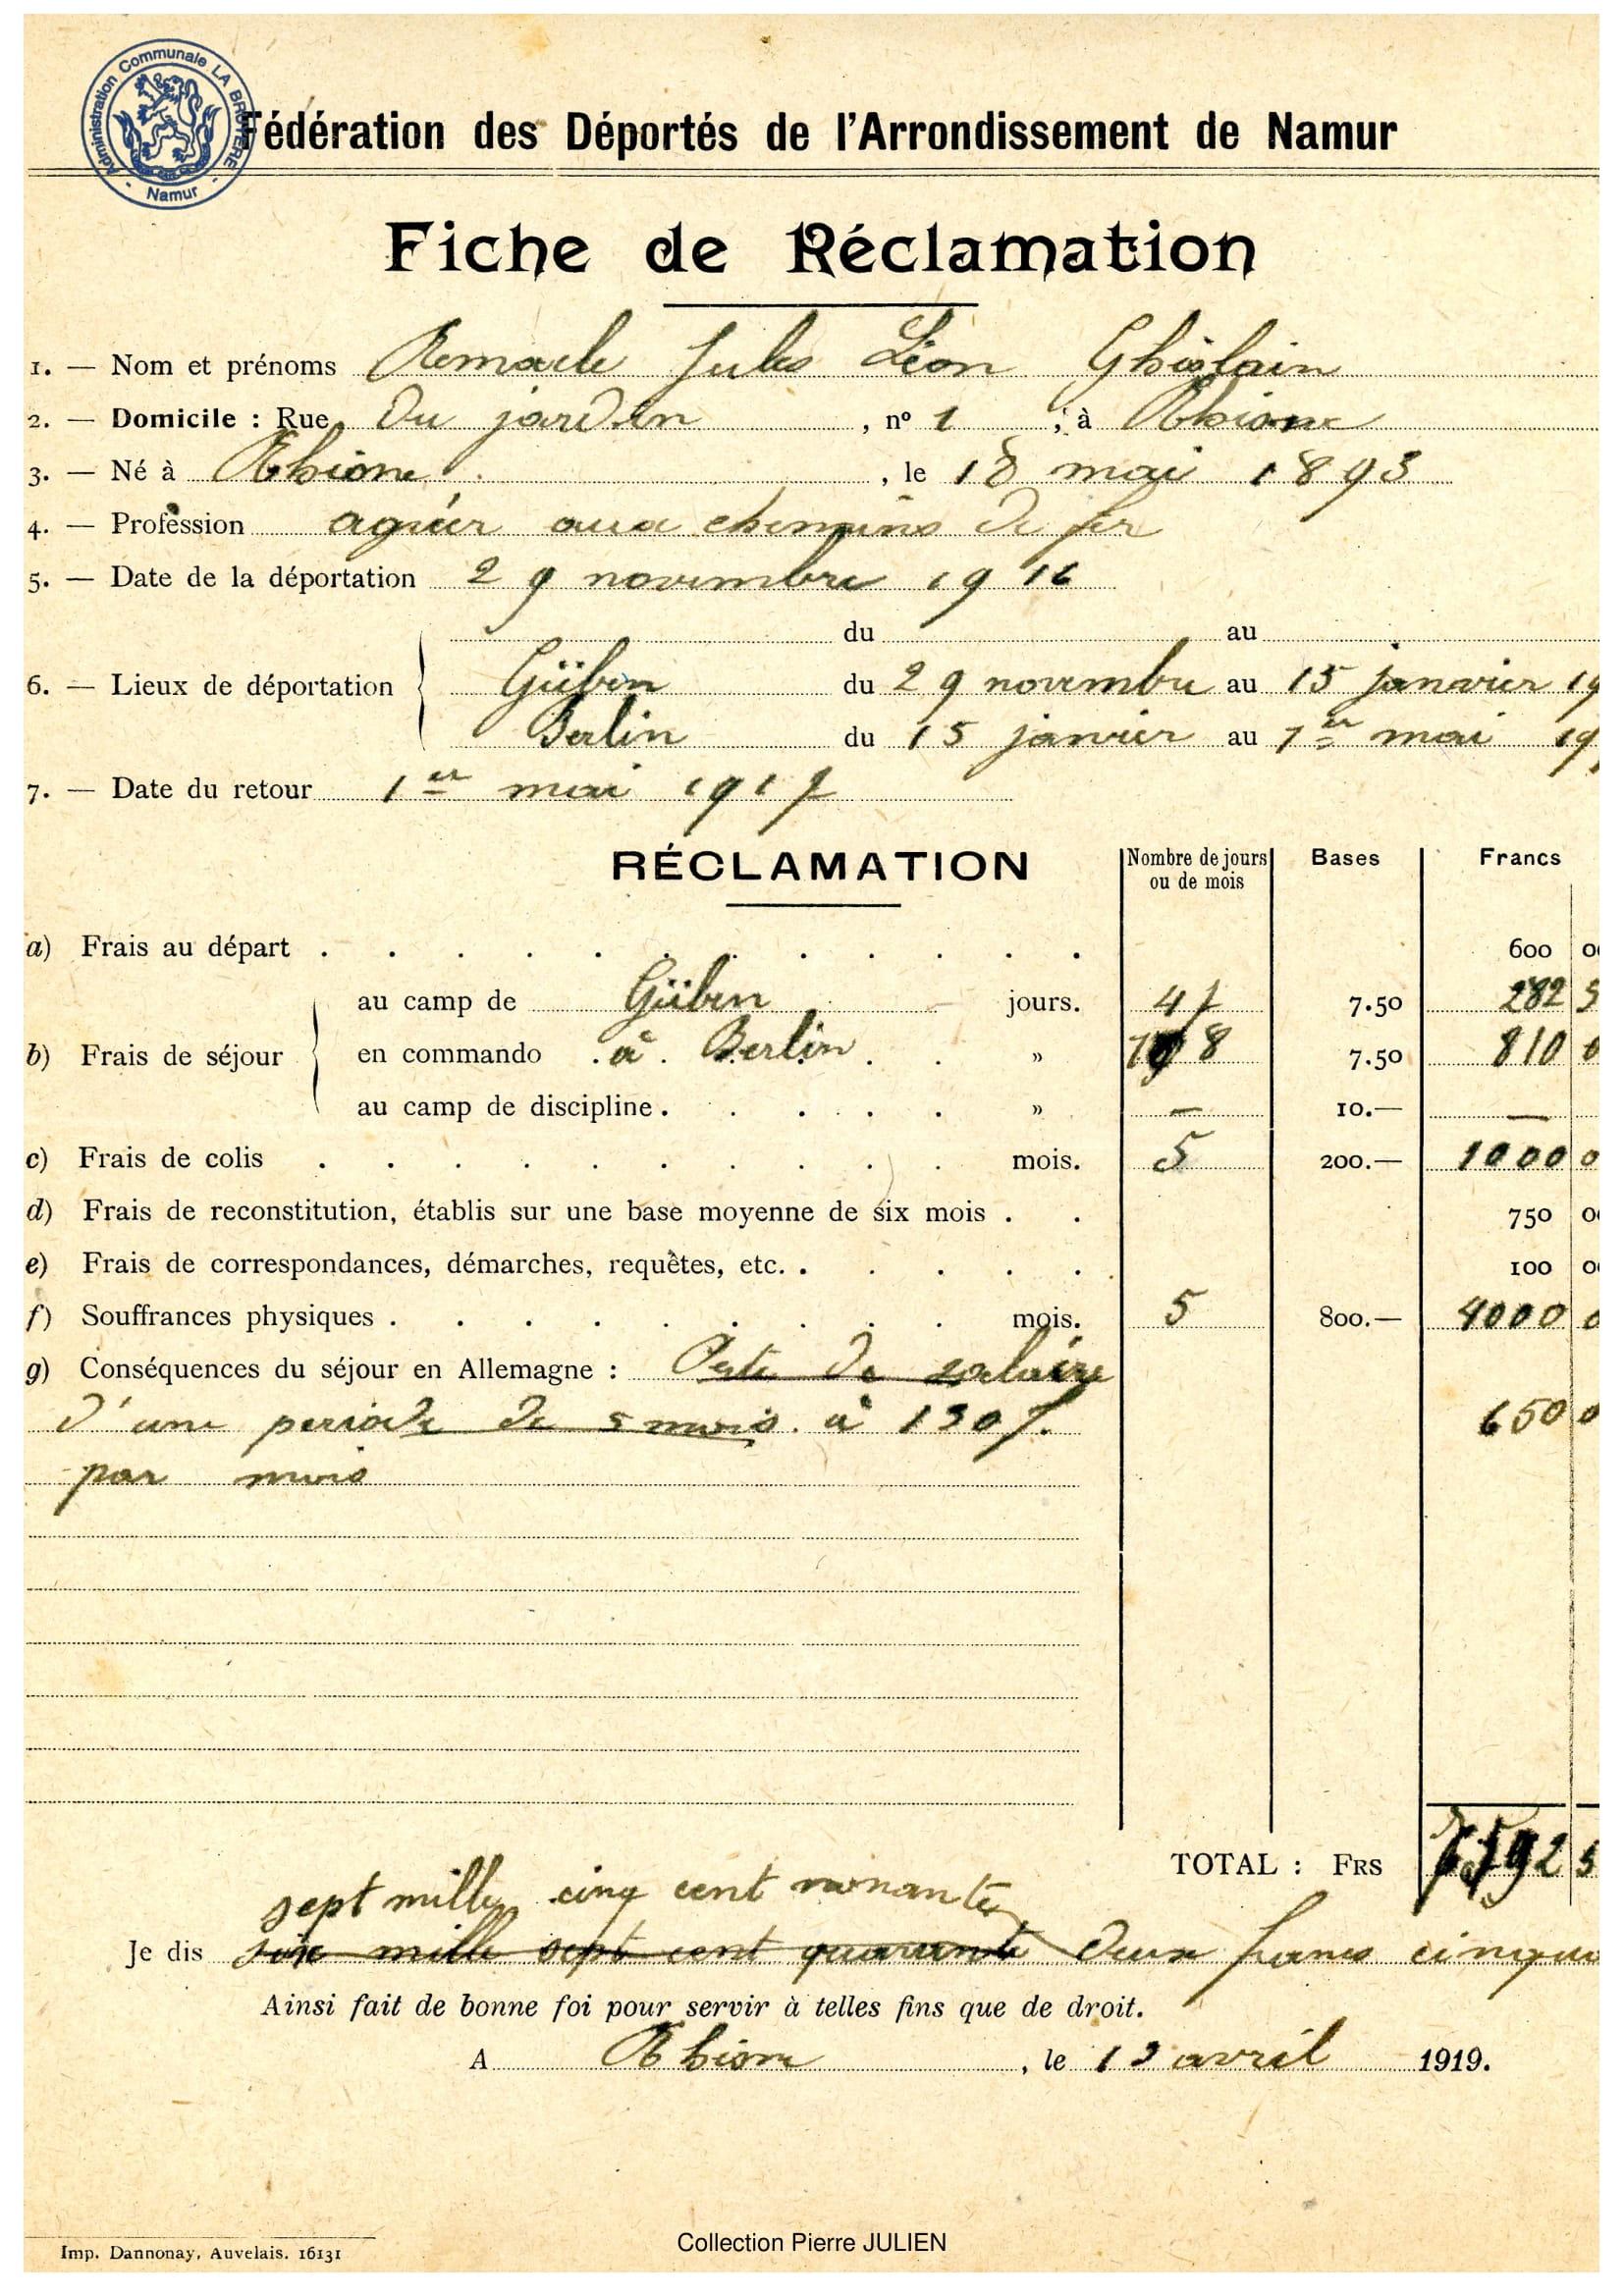 Administration Communale LA BRUYERE
- Namur -
Fédération des Déportés de l'Arrondissement de Namur
Fiche de Réclamation
1. — Nom et prénoms Remacle Jules Léon Ghislain
2. — Domicile : Rue Du jardin , nº 1 ; à Rhisne
3. — Né à Rhisne , le 18 mai 1893
4. — Profession ouvrier aux chemins de fer
5. — Date de la déportation 29 novembre 1916
du au
6. — Lieux de déportation Güben du 29 novembre au 15 janvier 19
Berlin du 15 janvier au 1er mai 19
7. — Date du retour 1er mai 1917
RÉCLAMATION Nombre de jours ou de mois Bases Francs
a) Frais au départ . . . . . . . . . . . . 600 0
au camp de Güben jours. 47 7.50 282 5
b) Frais de séjour en commando . à . Berlin . . » 108 7.50 810 0
au camp de discipline . . . . . » — 10.— —
c) Frais de colis . . . . . . . . . . mois. 5 200.— 1000 0
d) Frais de reconstitution, établis sur une base moyenne de six mois . . 750 0
e) Frais de correspondances, démarches, requêtes, etc. . . . . . 100 0
f) Souffrances physiques . . . . . . . . . mois. 5 800.— 4000 0
g) Conséquences du séjour en Allemagne : Perte de salaire
d'une periode de 5 mois . à 130 f. 650 0
par mois
TOTAL : FRS 7592 5
sept mille cinq cent nonante
Je dis six mille sept cent quarante deux francs cinqua
Ainsi fait de bonne foi pour servir à telles fins que de droit.
A Rhisne , le 13 avril 1919.
Imp. Dannonay, Auvelais. 16131
Collection Pierre JULIEN